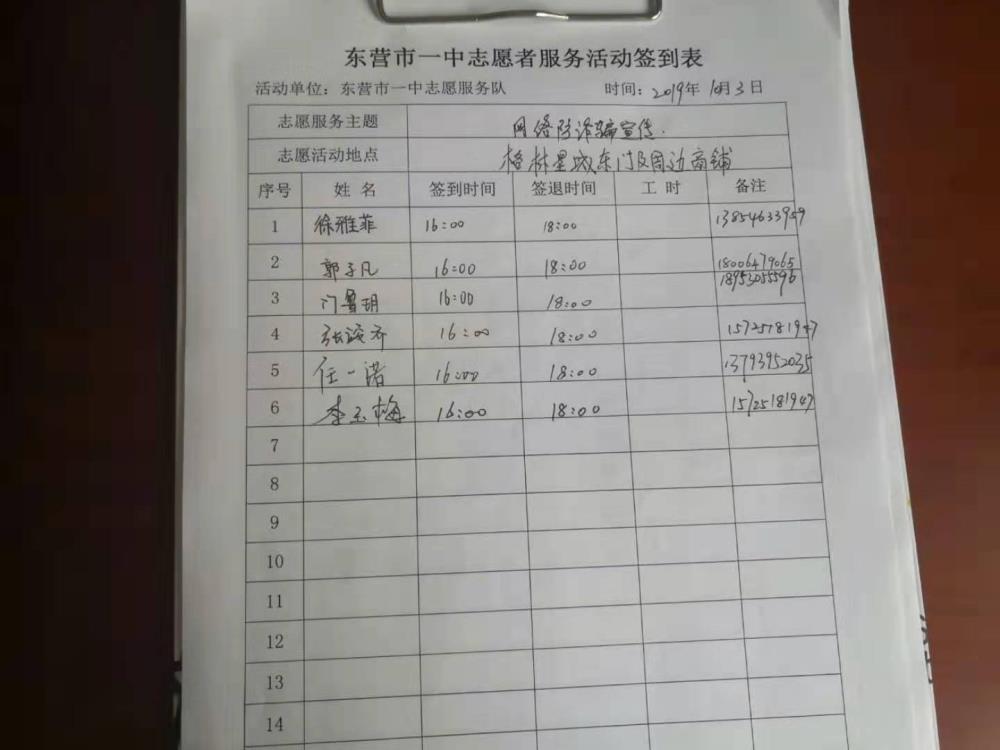 东营市一中志愿者服务活动签到表
活动单位：东营市一中志愿服务队 时间：2019年10月3日
志愿服务主题 网络防诈骗宣传.
志愿活动地点 格林星城东门及周边商铺
序号 姓名 签到时间 签退时间 工时 备注
1 徐雅菲 16:00 18:00 13854633959
2 郭子凡 16:00 18:00 18006479065
3 门昱玥 16:00 18:00 18953055596
4 张 齐 16:00 18:00 15725181947
5 任一诺 16:00 18:00 13793952035
6 李玉梅 16:00 18:00 15725181947
7
8
9
10
11
12
13
14